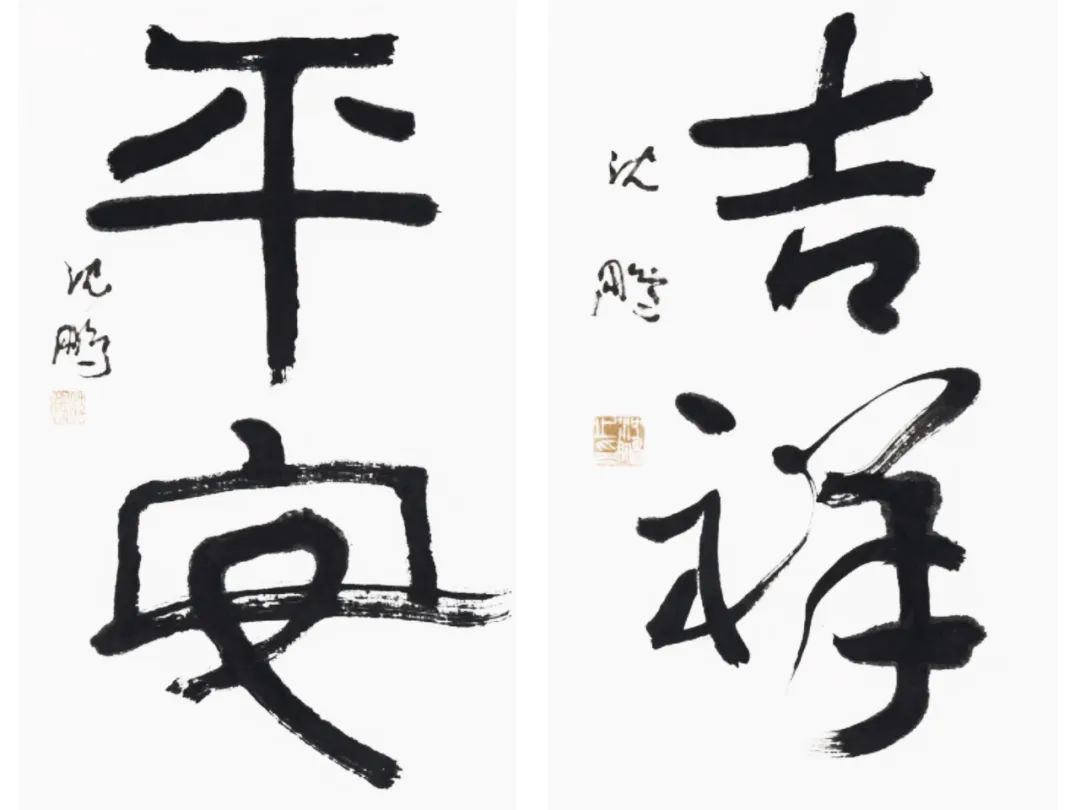 吉祥
沈鹏
平安
沈鹏